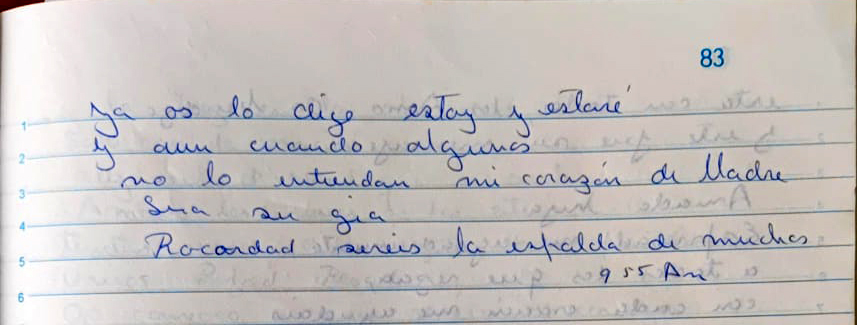 83
ya os lo digo estoy y estaré
1
y aun cuando algunos
2
no lo entiendan mi corazón de Madre
3
Sera su gia
4
Rocordad sereis la espalda de muchos
5
9 55 Am
6